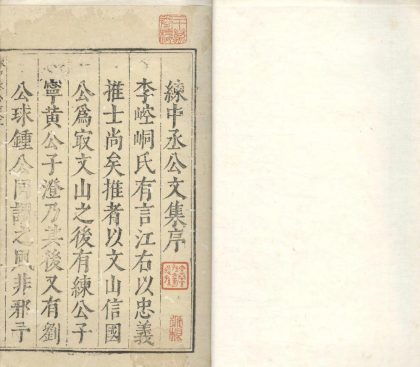 練中丞公文集序
李崆峒氏有言江右以忠義
推士尚矣推者以文山信國
公為㝡文山之後有練公子
寧黃公子澄乃其後又有劉
公球鍾公同謂之風非邪予